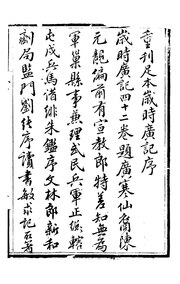 重刊足本歲時廣記序
歲時廣記四十二卷題廣寒仙裔陳
元靚編前有宣教郎特差知無為
軍巢縣事兼理武民兵軍正總轄
屯戍兵馬借緋朱鑑序文林郎新
劇局監門劉純序讀書敏求記